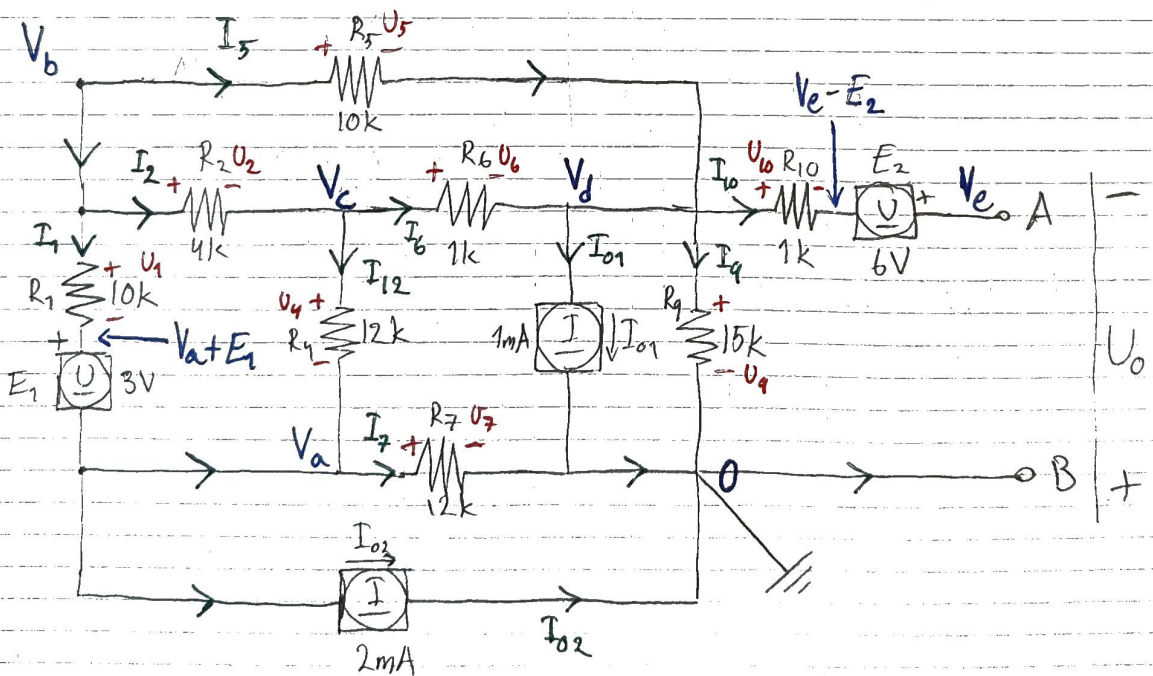 I5 R5 U5
Vb + -
10k
Ve - E2
I2 R2 U2 + -
Vc
R6 U6 + -
Vd
I10 U10 R10 + -
E2 U +
Ve
A -
I1
4k
I6 1k
1k
6V
R1 + U1 10k -
I12
I01
I9
U4 + R4 12k -
1mA I I01
R9 + 15k - U9
Uo
+ Va + E1
E1 U 3V
Va I7 + R7 U7 -
12k
0
B +
I02
I
2mA
I02